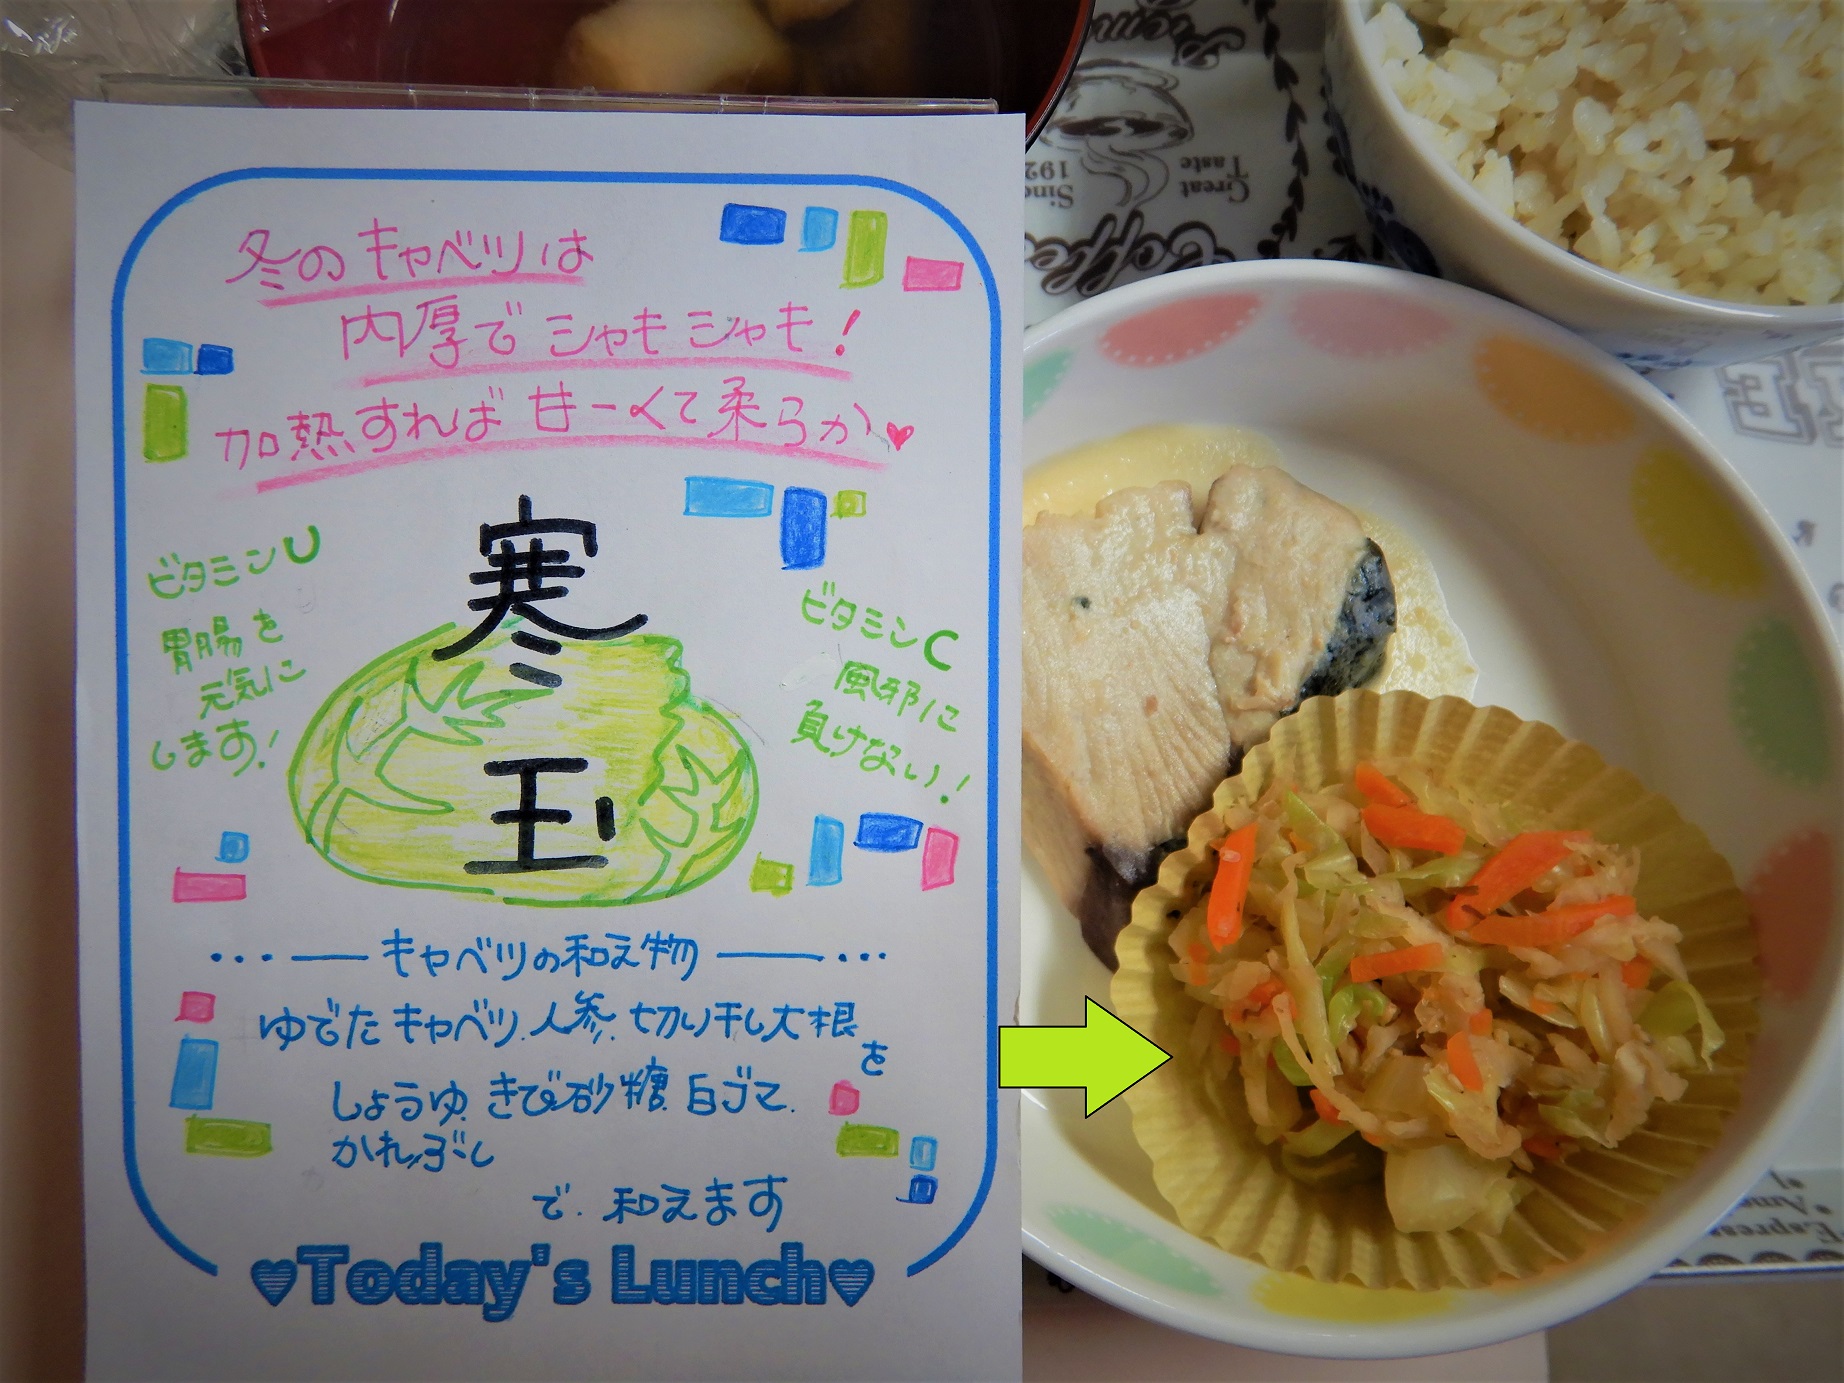 冬のキャベツは
内厚でシャキシャキ！
加熱すれば甘ーくて柔らか♥
寒玉
ビタミンU
胃腸を
元気に
します！
ビタミンC
風邪に
負けない！
…——キャベツの和え物——…
ゆでたキャベツ、人参、切り干し大根を
しょうゆ、きび砂糖、白ゴマ、
かつおぶし
で、和えます
♥Today's Lunch♥
Great
Taste
Coffee